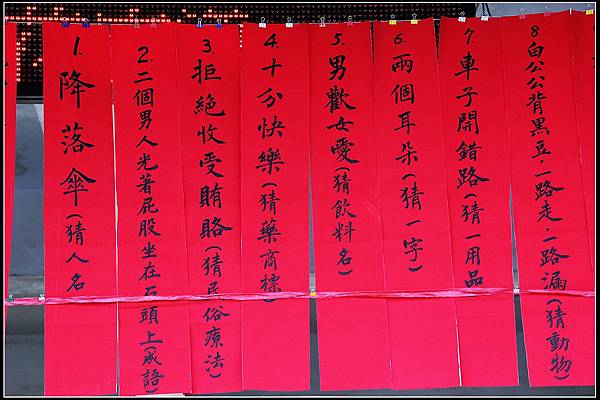 1.降落傘(猜人名)
2.二個男人光著屁股坐在石頭上(成語)
3.拒絕收受賄賂(猜民俗療法)
4.十分快樂(猜藥商標)
5.男歡女愛(猜飲料名)
6.兩個耳朵(猜一字)
7.車子開錯路(猜一用品
8.白公公背黑豆.一路走.一路漏(猜動物)